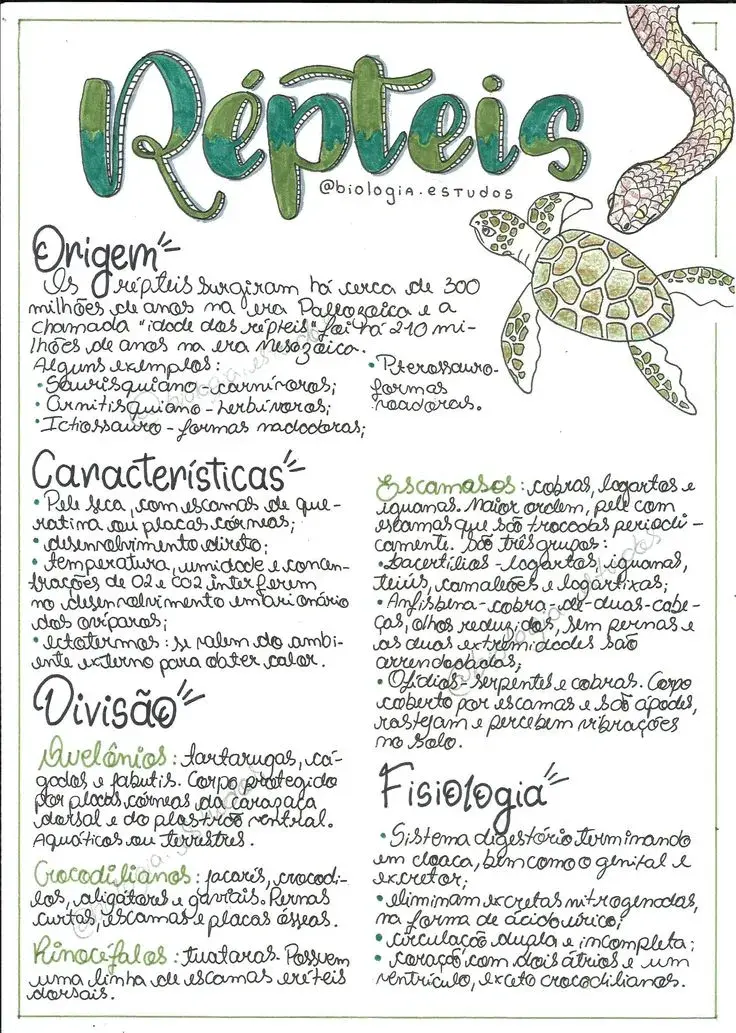 Répteis
@biologia.estudos
Origem
Os répteis surgiram há cerca de 300
milhões de anos na era Paleozoica e a
chamada "idade dos répteis" foi há 210 mi-
lhões de anos na era Mesozoica.
Alguns exemplos:
• Saurisquiano - carnívoros;
• Ornitisquiano - herbívoros;
• Ictiossauro - formas nadadoras;
• Pterossauro-
formas
voadoras.
Características
• Pele seca, com escamas de que-
ratina ou placas córneas;
• desenvolvimento direto;
• temperatura, umidade e concen-
trações de O2 e CO2 interferem
no desenvolvimento embrionário
dos ovíparos;
• ectotermos: se valem do ambi-
ente externo para obter calor.
Divisão
Quelônios: tartarugas, cá-
gados e jabutis. Corpo protegido
por placas córneas da carapaça
dorsal e do plastrão ventral.
Aquáticos ou terrestres.
Crocodilianos: jacarés, crocodi-
los, aligátores e gaviais. Pernas
curtas, escamas e placas ósseas.
Rincocéfalos: tuataras. Possuem
uma linha de escamas eréteis
dorsais.
Escamasos: cobras, lagartos e
iguanas. Maior ordem, pele com
escamas que são trocadas periodi-
camente. São três grupos:
• Lacertílios - lagartos, iguanas,
teiús, camaleões e lagartixas;
• Anfisbena - cobra-de-duas-cabe-
ças, olhos reduzidos, sem pernas e
as duas extremidades são
arredondadas;
• Ofídios - serpentes e cobras. Corpo
coberto por escamas e são ápodes,
rastejam e percebem vibrações
no solo.
Fisiologia
• Sistema digestório terminando
em cloaca, bem como o genital e
excretor;
• eliminam excretas nitrogenadas,
na forma de ácido úrico;
• circulação dupla e incompleta;
• coração com dois átrios e um
ventrículo, exceto crocodilianos.